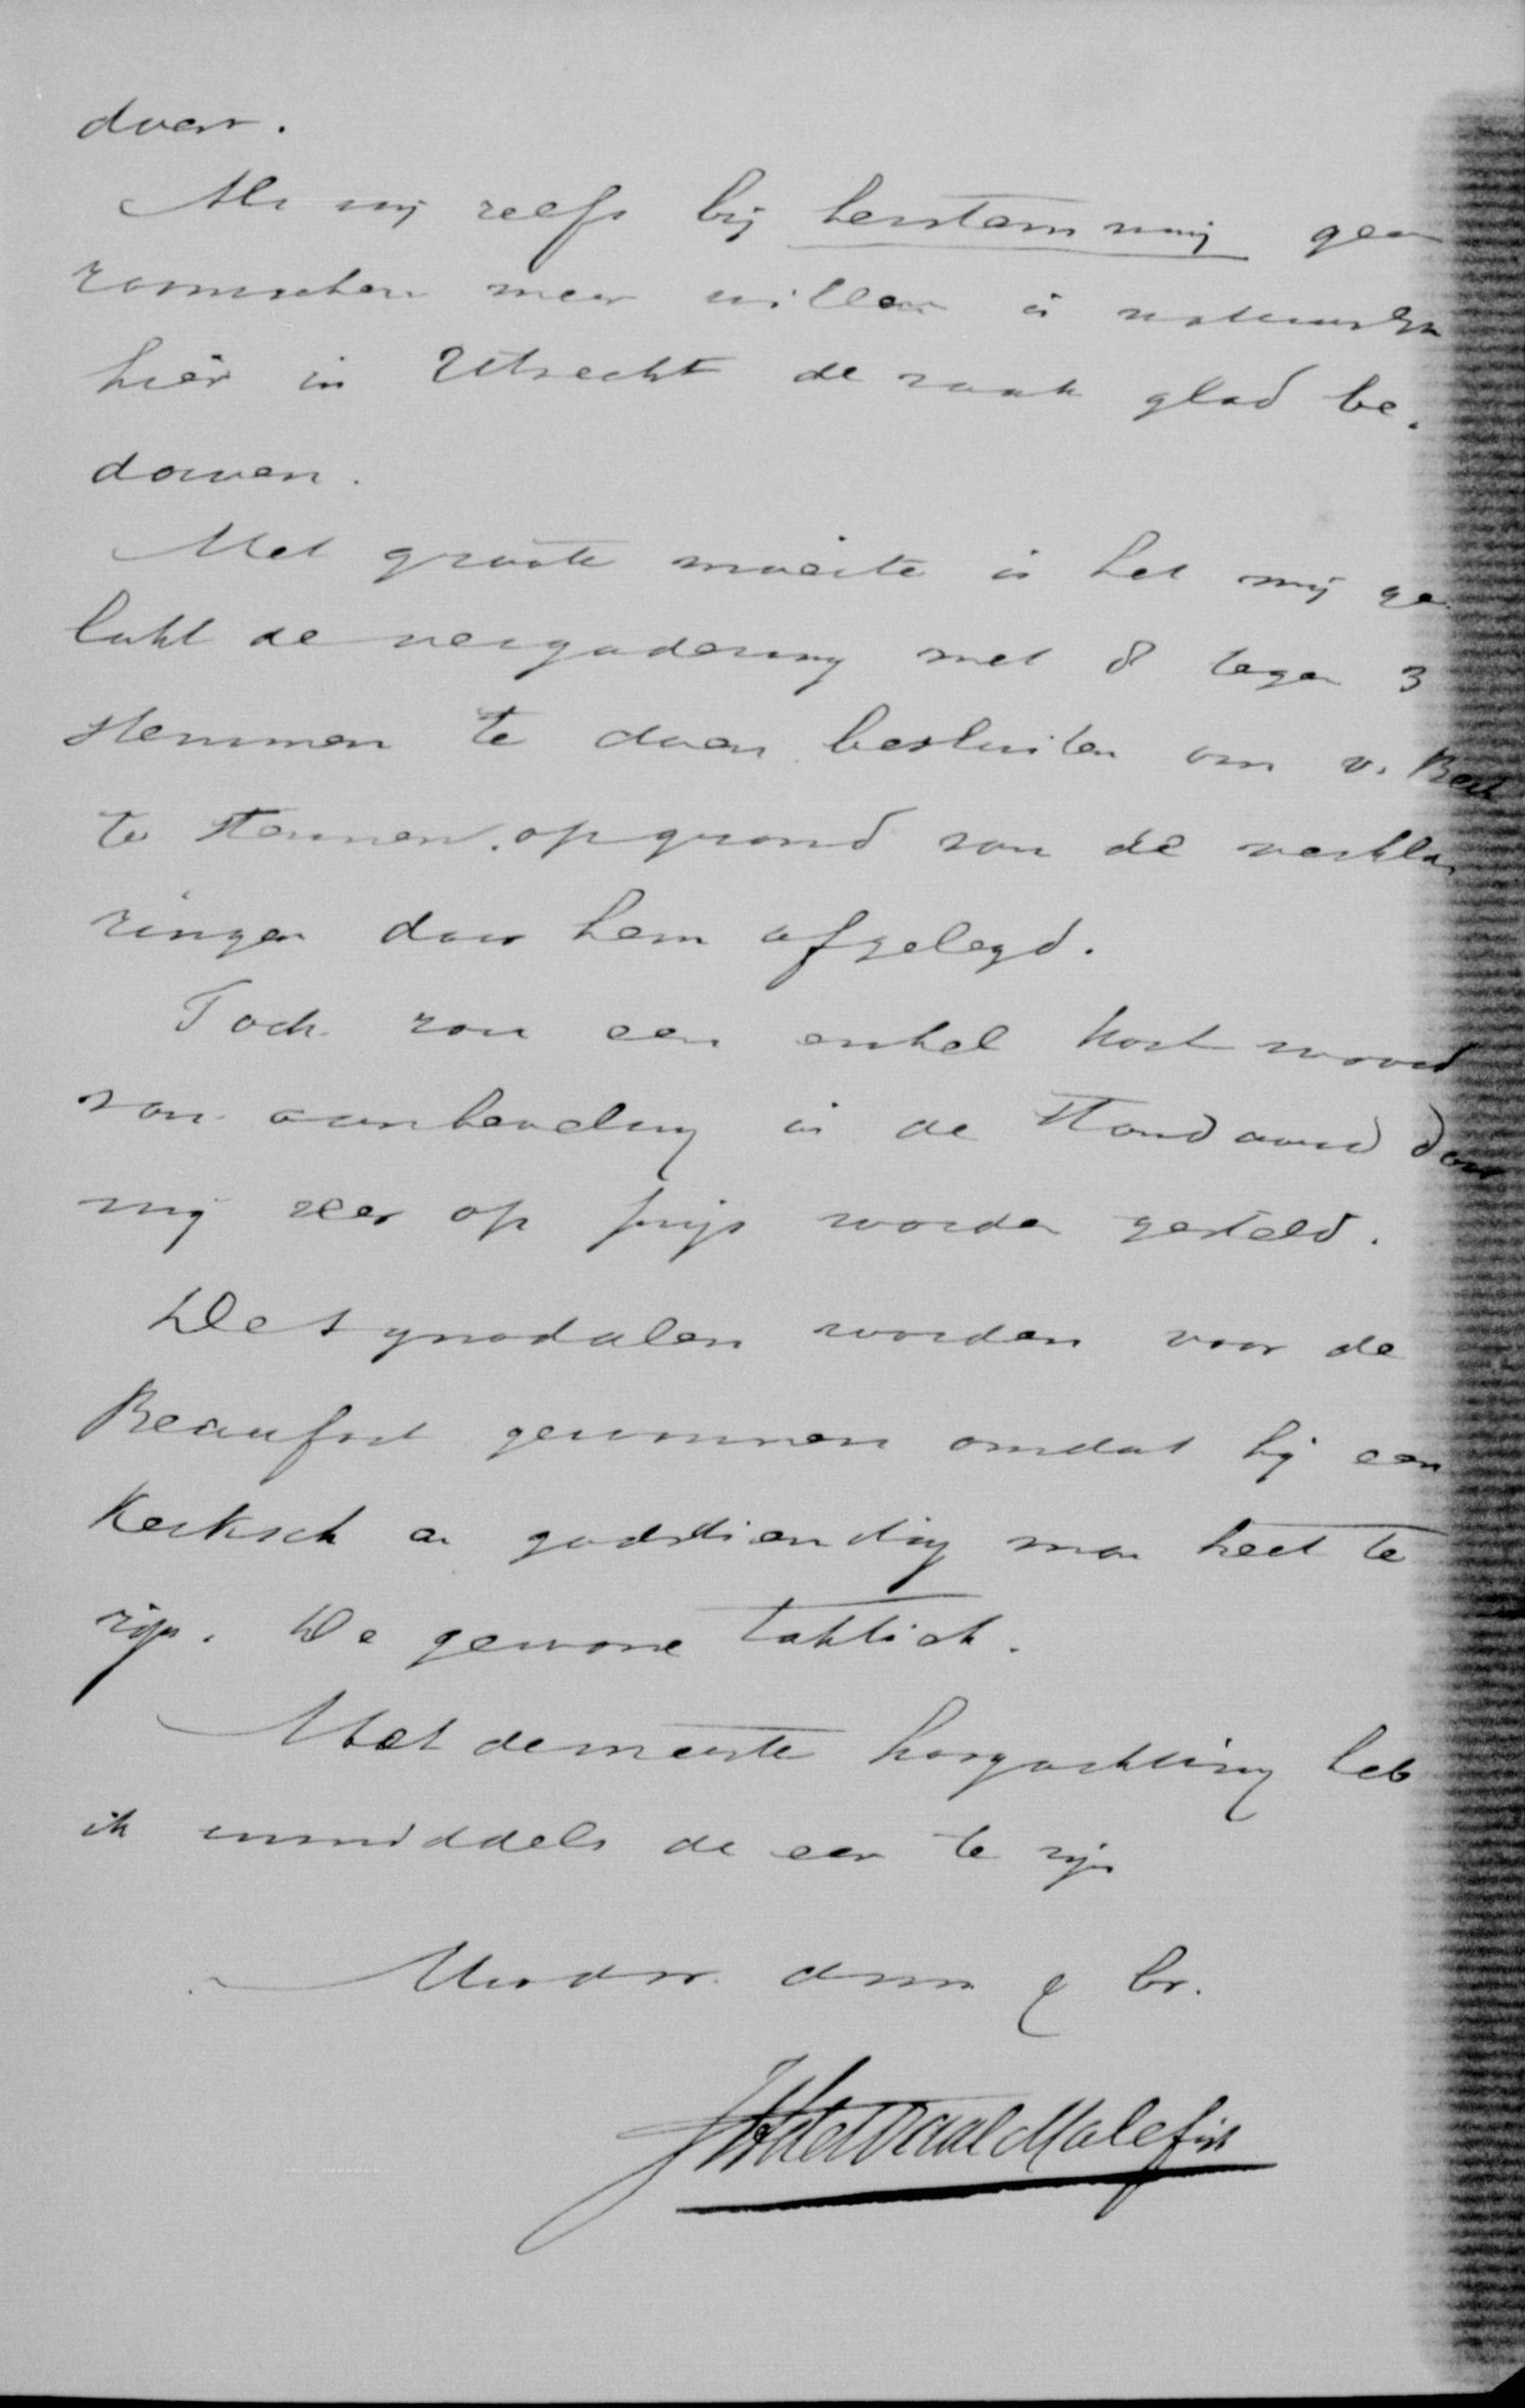 doen.
Als wij zelfs bij herstemming geen
roomschen meer willen is natuurlijk
hier in Utrecht de zaak glad be-
dorven.
Met groote moeite is het mij ge-
lukt de vergadering met 8 tegen 3
stemmen te doen besluiten om v. Best
te steunen, op grond van de verkla-
ringen door hem afgelegd.
Toch zou een enkel kort woord
van aanbeveling in de Standaard door
mij zeer op prijs worden gesteld.
De Synodalen worden voor de
Beaufort gewonnen omdat hij een
Kerksch en godsdienstig man heet te
zijn. De gewone taktiek.
Met de meeste hoogachting heb
ik inmiddels de eer te zijn
Uw dw. dnr & br.
JH de Waal Malefijt